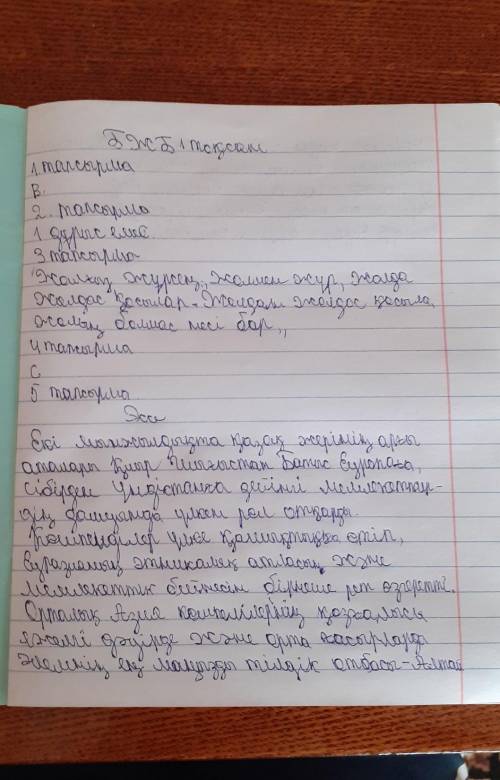 БЖБ 1 тоқсан
1 тапсырма
В.
2. тапсырма
1 дұрыс емес
3 тапсырма
"Жалғыз жүрсең, жолмен жүр, жолда
жолдас қосылар. Жолдан жолдас қосыла
жолың болмас несі бар,,
4 тапсырма
С
5 тапсырма
Эссе
Екі мыңжылдықта қазақ жерінің арғы
аталары Қиыр Шығыстан Батыс Еуропаға,
Сібірден Үндістанға дейінгі мемлекеттер-
дің дамуында үлкен рөл атқарды.
Көшпенділер үлкен қашықтыққа өтіп,
Еуразияның этникалық атласын және
мемлекеттік бейнесін бірнеше рет өзгертті.
Орталық Азия көшпелілерінің қозғалысы
ежелгі дәуірде және орта ғасырларда
әлемнің ең маңызды тілдік отбасы - Алтай